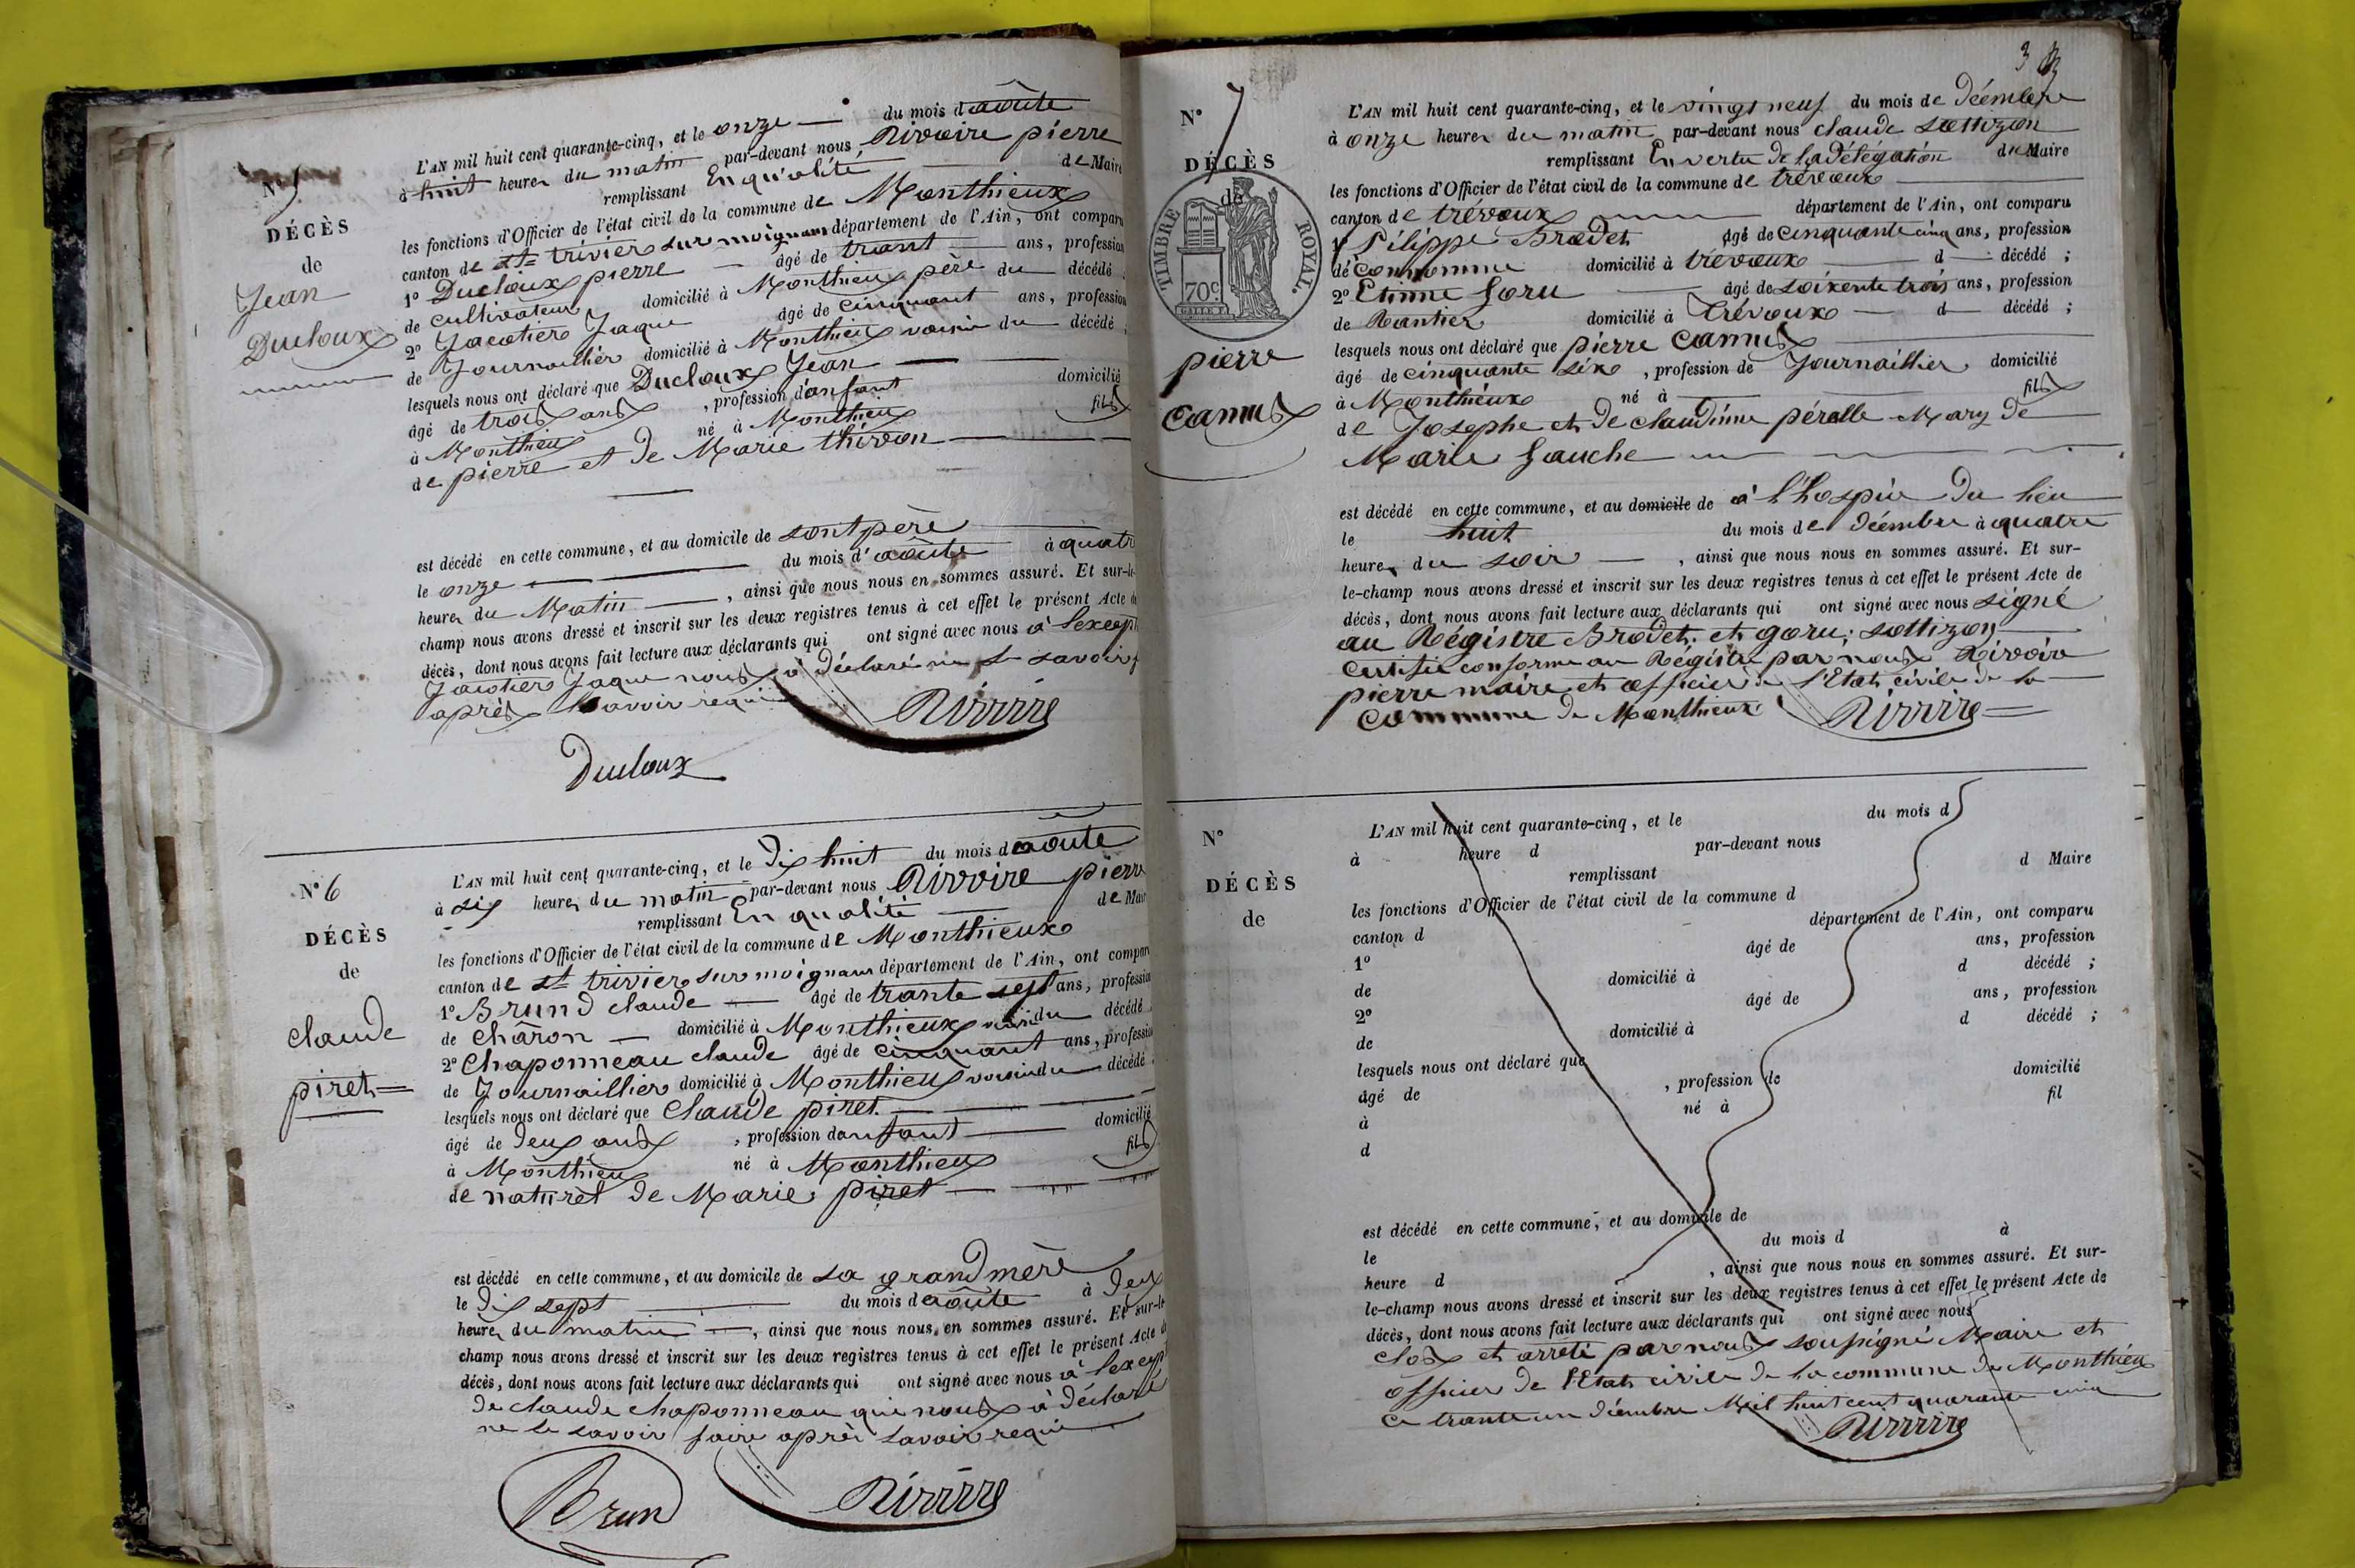 N° 5
DÉCÈS
de
Jean
Ducloux
L'AN mil huit cent quarante-cinq, et le onze du mois d aoûte
à huit heures du matin par-devant nous Rivoire pierre
remplissant En qu'alité de Maire
les fonctions d'Officier de l'état civil de la commune de Monthieux
canton de st trivier sur moignans département de l'Ain, ont comparu
1° Ducloux pierre âgé de trant ans, profession
de cultivateur domicilié à Monthieux père du décédé ;
2° Jacotier Jaque âgé de cinquant ans, profession
de Journaillier domicilié à Monthieux voisin du décédé ;
lesquels nous ont déclaré que Ducloux Jean
âgé de trois ans , profession d'anfant domicilié
à Monthieux né à Monthieux fils
de pierre et de Marie thivon
est décédé en cette commune, et au domicile de sont père
le onze du mois d'aoûte à quatr
heures du Matin , ainsi que nous nous en sommes assuré. Et sur-le-
champ nous avons dressé et inscrit sur les deux registres tenus à cet effet le présent Acte de
décès, dont nous avons fait lecture aux déclarants qui ont signé avec nous à lexcept
Jacotier Jaque nous a déclaré ne le savoir f
après lavoir requi
Rivoire
Ducloux
N° 6
DÉCÈS
de
claude
piret
L'AN mil huit cent quarante-cinq, et le dix huit du mois d aoute
à six heures du matin par-devant nous Rivoire pierre
remplissant En qualité de Mair
les fonctions d'Officier de l'état civil de la commune de Monthieux
canton de st trivier sur moignans département de l'Ain, ont compar
1° Brund claude âgé de trante sept ans, profession
de châron domicilié à Monthieux voisin du décédé
2° Chaponneau claude âgé de cinquant ans, profession
de Journaillier domicilié à Monthieux voisin du décédé ;
lesquels nous ont déclaré que Claude piret
âgé de deux ans , profession d anfant domicilié
à Monthieux né à Monthieux fils
de naturel de Marie piret
est décédé en cette commune, et au domicile de sa grand mère
le dix sept du mois d aoûte à deux
heures du matin , ainsi que nous nous en sommes assuré. Et sur-le-
champ nous avons dressé et inscrit sur les deux registres tenus à cet effet le présent Acte d
décès, dont nous avons fait lecture aux déclarants qui ont signé avec nous à lexcep
de claude chaponneau que nous a déclaré
ne le savoir faire après lavoir requi
Brun
Rivoire
3
N° 7
DÉCÈS
de
TIMBRE ROYAL.
70c
pierre
camus
L'AN mil huit cent quarante-cinq, et le vingt neuf du mois de Déembre
à onze heures du matin par-devant nous claude sottizon
remplissant En vertu de la délégation du Maire
les fonctions d'Officier de l'état civil de la commune de trévoux
canton de trévoux département de l'Ain, ont comparu
1° Pilippe Brodet âgé de cinquante cinq ans, profession
de domicilié à trévoux d décédé ;
2° Etinne Goru âgé de soixente trois ans, profession
de Rantier domicilié à Trévoux d décédé ;
lesquels nous ont déclaré que pierre camus
âgé de cinquante six , profession de Journaillier domicilié
à Monthieux né à fils
de Josephe et de claudinne pérelle Mary de
Marie Gauche
est décédé en cette commune, et au domicile de à l'hospice du lieu
le huit du mois de déembre à quatre
heures du soir , ainsi que nous nous en sommes assuré. Et sur-
le-champ nous avons dressé et inscrit sur les deux registres tenus à cet effet le présent Acte de
décès, dont nous avons fait lecture aux déclarants qui ont signé avec nous signé
au Régistre Brodet et goru; sottizon
Certifie conforme au Régistre par nous Rivoire
pierre maire et officier de l'Etat civile de la
commune de Monthieux Rivoire
N°
DÉCÈS
de
L'AN mil huit cent quarante-cinq, et le du mois d
à heure d par-devant nous
remplissant d Maire
les fonctions d'Officier de l'état civil de la commune d
canton d département de l'Ain, ont comparu
1° âgé de ans, profession
de domicilié à d décédé ;
2° âgé de ans, profession
de domicilié à d décédé ;
lesquels nous ont déclaré que
âgé de , profession de domicilié
à né à fil
d
est décédé en cette commune, et au domicile de
le du mois d à
heure d , ainsi que nous nous en sommes assuré. Et sur-
le-champ nous avons dressé et inscrit sur les deux registres tenus à cet effet le présent Acte de
décès, dont nous avons fait lecture aux déclarants qui ont signé avec nous
clos et arrété par nous soussigné Maire et
officier de l'Etat civile de la commune de Monthieux
ce trante un déembre Mil huit cent quarante cinq
Rivoire